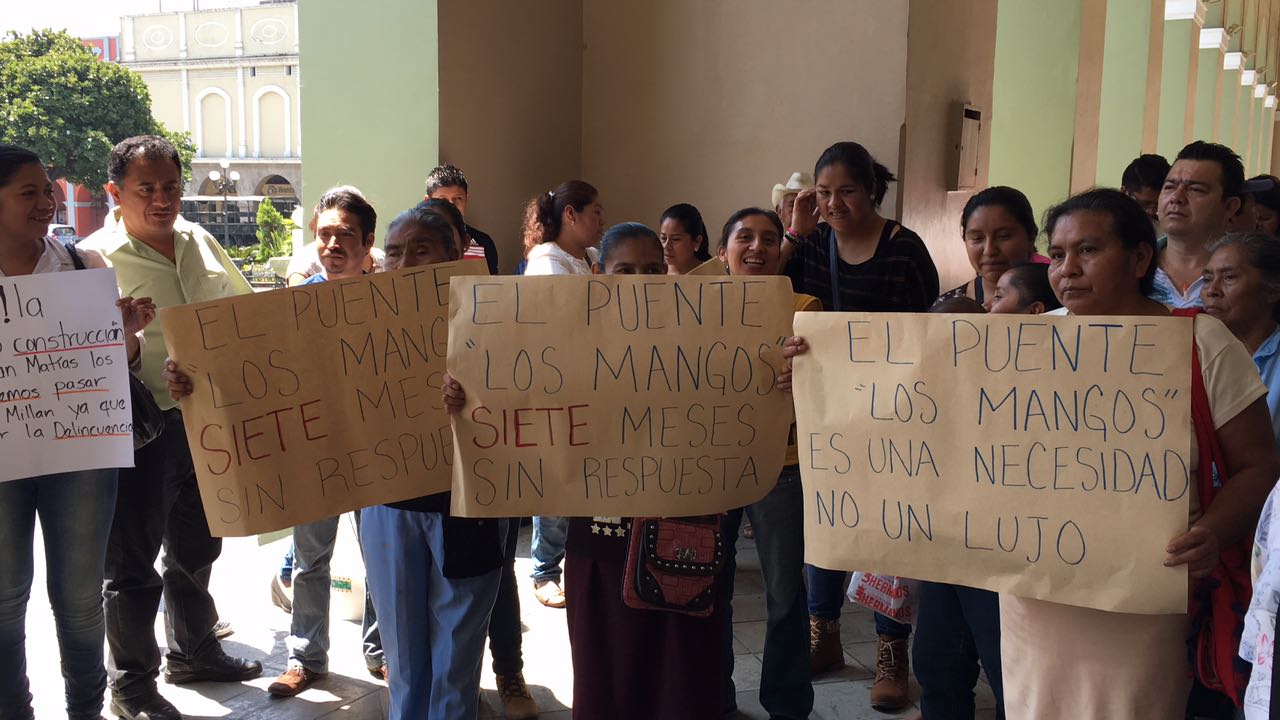 !la
construcción
an Matías los
emos pasar
Millan ya que
r la Delincuencia
EL PUENTE
"LOS MANG
SIETE MES
SIN RESPUE
EL PUENTE
"LOS MANGOS"
SIETE MESES
SIN RESPUESTA
EL PUENTE
"LOS MANGOS"
ES UNA NECESIDAD
NO UN LUJO